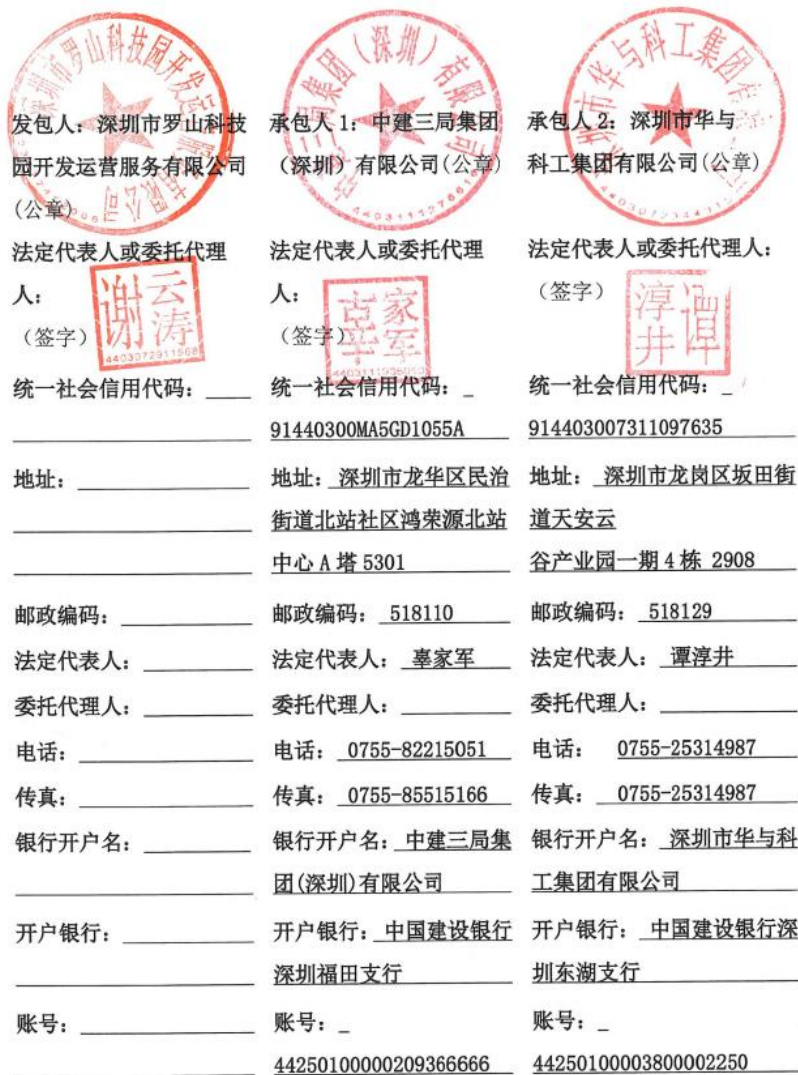 发包人：深圳市罗山科技
园开发运营服务有限公司
(公章)
法定代表人或委托代理
人：
（签字）
谢云涛
4403072911568
统一社会信用代码：
地址：
邮政编码：
法定代表人：
委托代理人：
电话：
传真：
银行开户名：
开户银行：
账号：
承包人1：中建三局集团
（深圳）有限公司(公章)
法定代表人或委托代理
人：
（签字）
辜家军
统一社会信用代码：
91440300MA5GD1055A
地址：深圳市龙华区民治
街道北站社区鸿荣源北站
中心A塔5301
邮政编码：518110
法定代表人：辜家军
委托代理人：
电话：0755-82215051
传真：0755-85515166
银行开户名：中建三局集
团(深圳)有限公司
开户银行：中国建设银行
深圳福田支行
账号：
44250100000209366666
承包人2：深圳市华与
科工集团有限公司(公章)
法定代表人或委托代理人：
（签字）
谭淳井
统一社会信用代码：
914403007311097635
地址：深圳市龙岗区坂田街
道天安云
谷产业园一期4栋 2908
邮政编码：518129
法定代表人：谭淳井
委托代理人：
电话：0755-25314987
传真：0755-25314987
银行开户名：深圳市华与科
工集团有限公司
开户银行：中国建设银行深
圳东湖支行
账号：
44250100003800002250